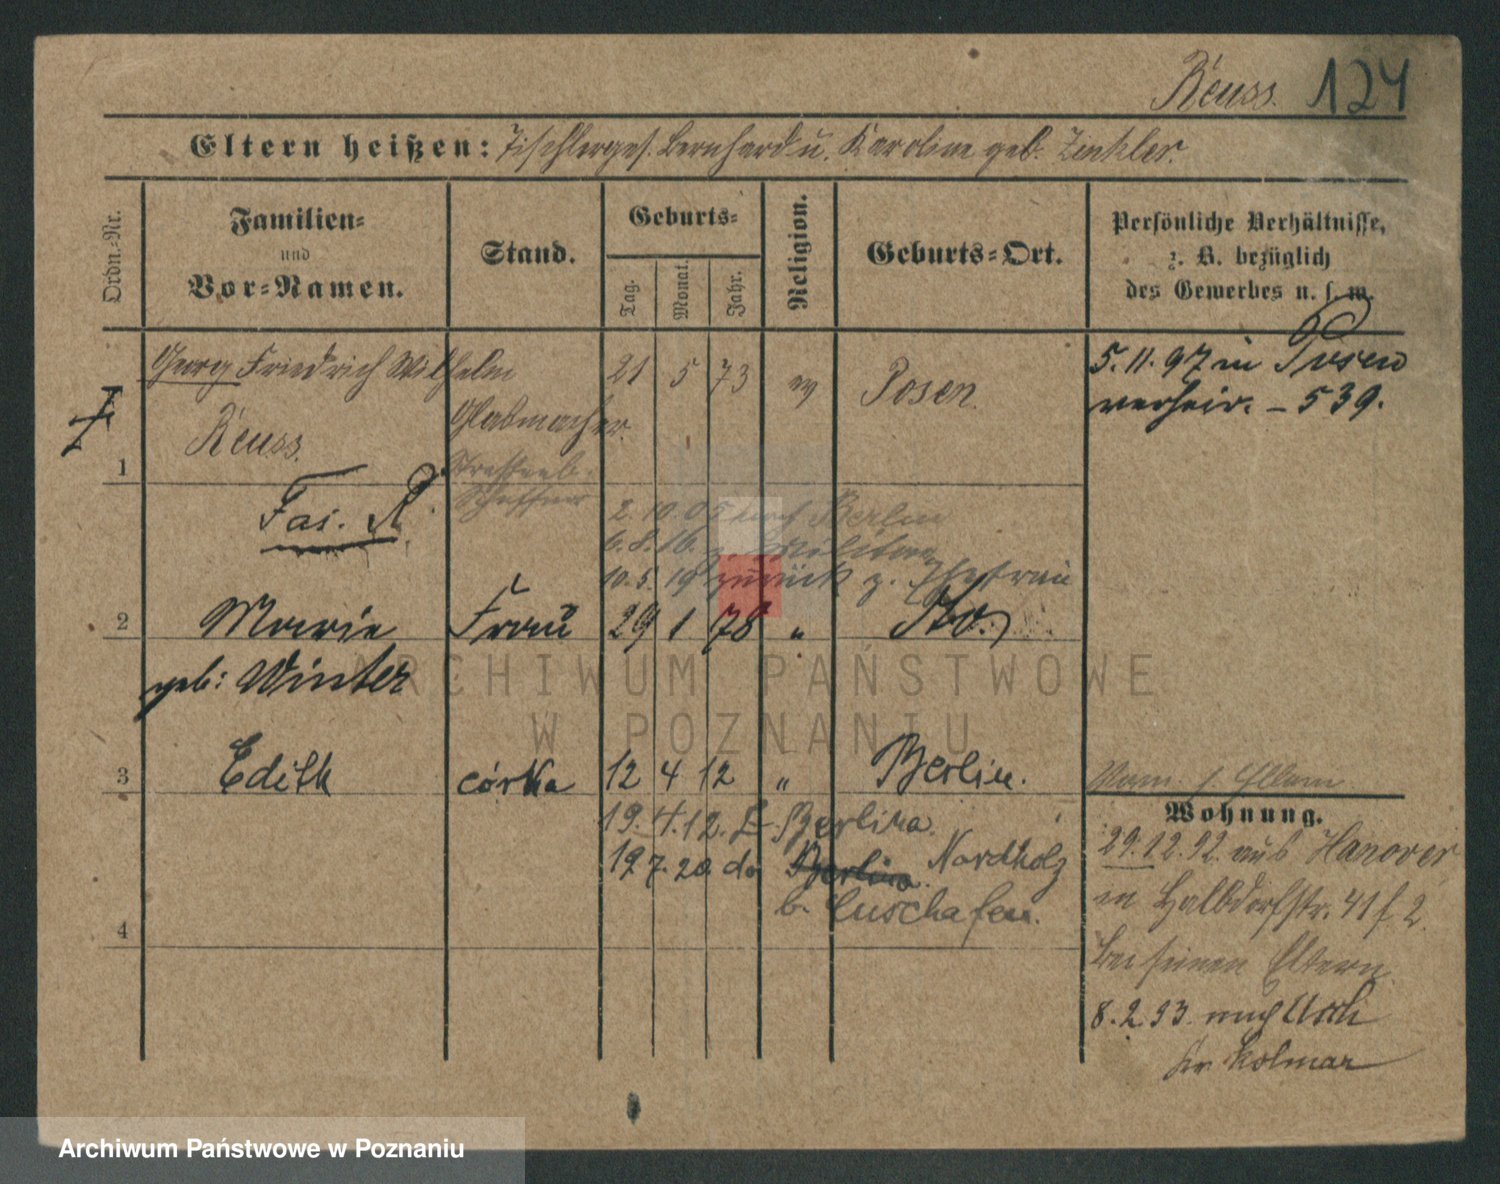 Reuss. 124
Eltern heißen: Tischlerges. Bernhard u. Karoline geb. Zinkler.
Ordn.-Nr.
Familien- und Vor-Namen.
Stand.
Geburts-
Tag. Monat. Jahr.
Religion.
Geburts-Ort.
Persönliche Verhältnisse,
z. B. bezüglich
des Gewerbes u. s. w.
Georg Friedrich Wilhelm 21 5 73 ev Posen.
Reuss.
1
5.11.97 in Posen
verheir. – 539.
Fas. R.
2.10.05 nach Berlin
6.8.16. z. Militär
10.5.19 zurück z. Ehefrau
2 Marie Frau 29 1 78 " do.
geb: Winter
3 Edith córka 12 4 12 " Berlin.
19.4.12. z Berlina.
19 7. 20. do Berlina. Nordholz
b. Cuschafen.
4
Wohnung.
29.12.92. aus Hanover
in Halbdorfstr. 41 f. 2.
bei seinen Eltern
8.2.93. nach Usch
Kr Kolmar
ARCHIWUM PAŃSTWOWE
W POZNANIU
Archiwum Państwowe w Poznaniu